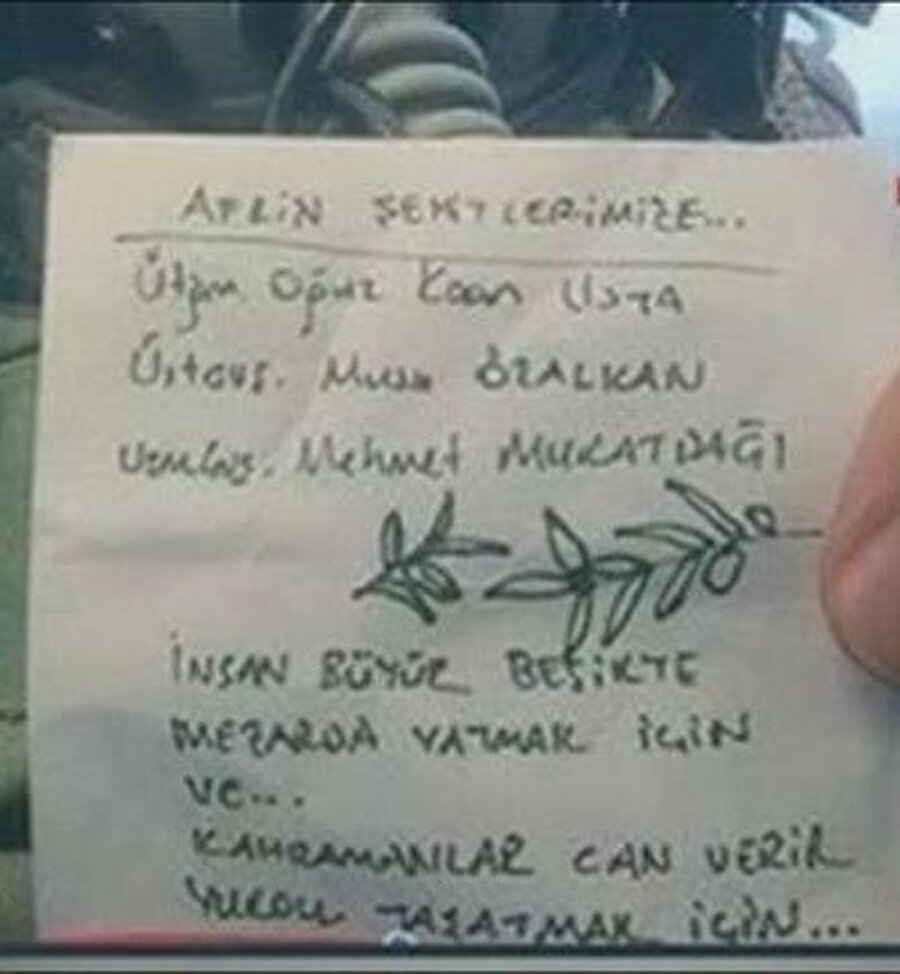 AFRİN ŞEHİTLERİMİZE...
Ütğm. Oğuz Kaan Usta
Üstçvş. Musa ÖZALKAN
Uzm.Çvş. Mehmet MURATDAĞI
İNSAN BÜYÜR BEŞİKTE
MEZARDA YATMAK İÇİN
VE...
KAHRAMANLAR CAN VERİR
YURDU YAŞATMAK İÇİN...